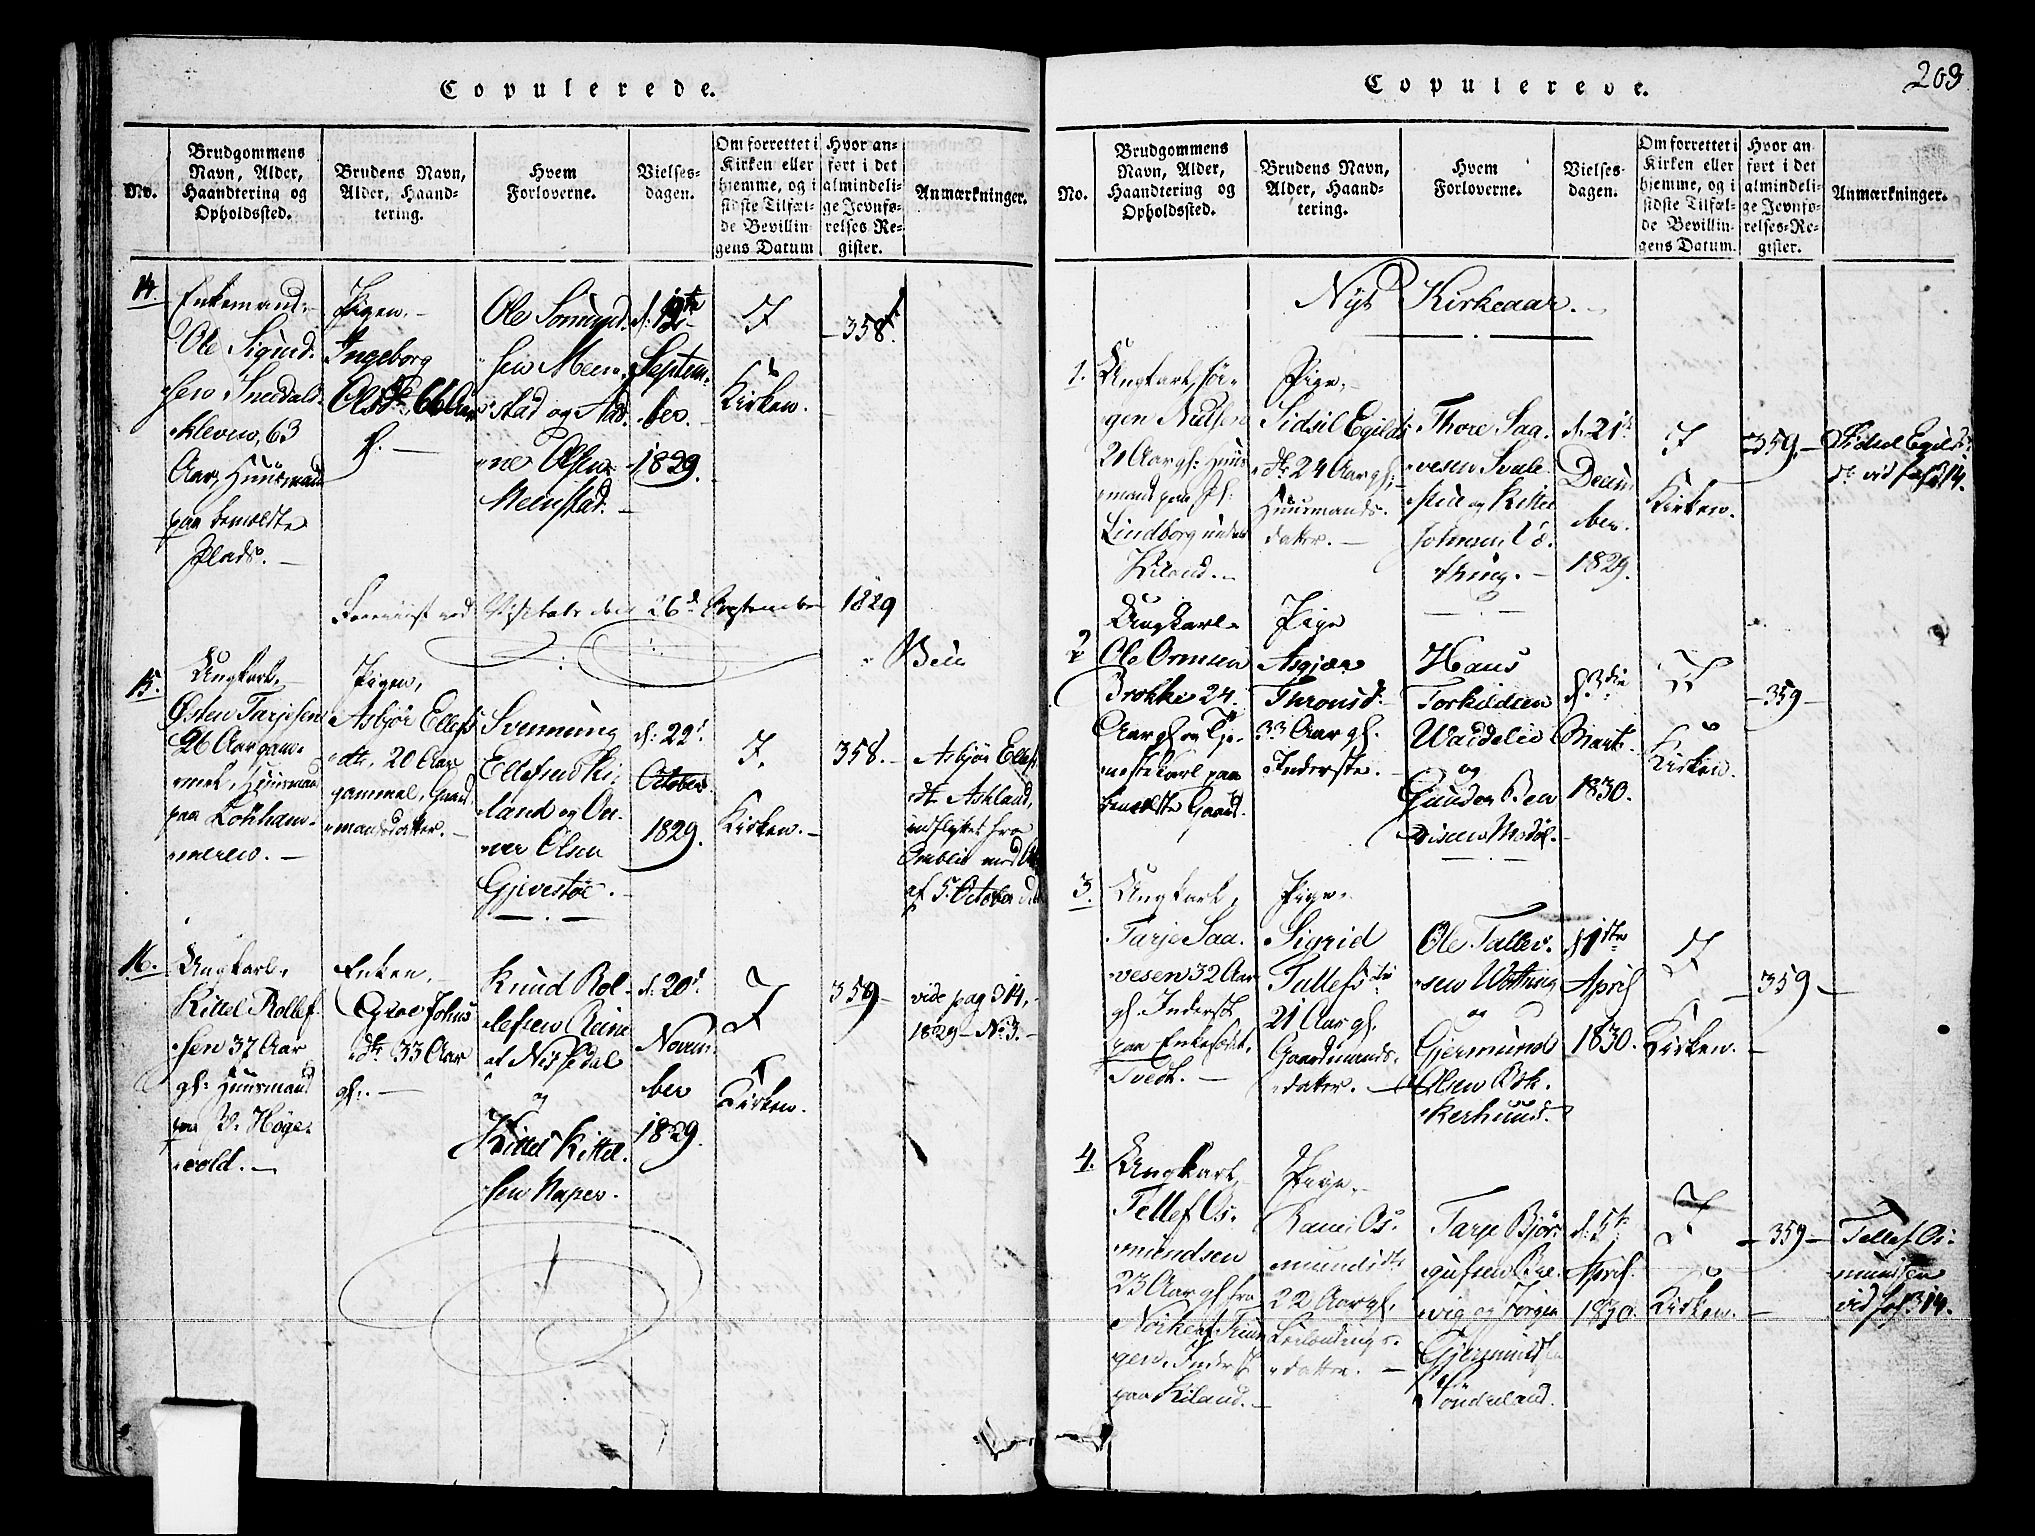 Copulerede.
No.
Brudgommens Navn, Alder, Haandtering og Opholdssted.
Brudens Navn, Alder, Haandtering.
Hvem Forloverne.
Vielsesdagen.
Om forrettet i Kirken eller hjemme, og i sidste Tilfælde Bevillingens Datum
Hvor anført i det almindelige Jevnførelses-Register.
Anmærkninger.
14.
Enkemand
Ole Sigurd-
sen
kleven, 63
Aar, Huusmand
paa bemeldte
Plads.
Pigen
Ingeborg
Olsdtr. 66 Aar
g.
Ole
sen
stad og Aad-
ne Olsen
d: 12te
Septem-
ber
1829.
I
Kirken.
358.
ved Visitats den 26d September 1829
15.
Ungkarl
Østen Tarjesen
26 Aar gam-
mel, Huusmand
paa
Pigen,
Asbjør Ellefs
dtr, 20 Aar
gammel, Gaard
mandsdotter.
Svennung
Ellefsen Ki-
land og On-
ver Olsen
d: 22d
October
1829.
I
Kirken.
358.
Asbjør Ellefs
dtr Askland,
indflyttet fra
af 5 October
16.
Ungkarl
Kittel Rollef-
sen 37 Aar
gl: Huusmand
paa Pl. Høge-
vold.
Enken,
Groe Johns
dtr 33 Aar
gl:
Knud Rol-
lefsen
af Nissedal
og
Kittel Kittel-
sen Napes.
d: 20d
Novem-
ber
1829.
I
Kirken.
359
vide pag 314,
1829 No 3.
203
Copulerede.
No.
Brudgommens Navn, Alder, Haandtering og Opholdssted.
Brudens Navn, Alder, Haandtering.
Hvem Forloverne.
Vielsesdagen.
Om forrettet i Kirken eller hjemme, og i sidste Tilfælde Bevillingens Datum.
Hvor anført i det almindelige Jevnførelses-Register.
Anmærkninger.
Nyt Kirkeaar.
1.
Ungkarl Jør-
gen Nielsen
21 Aar gl: Huus
mand paa Pl:
Lindborg under
Kiland.
Pige,
Sidsel Egilds
dtr 24 Aar gl:
Huusmands-
datter.
Thore Saa-
vesen
og Kittel
Johnsen
d. 21de
Decem-
ber
1829.
I
Kirken.
359.
Sidsel Egilds
dtr vid fol 314.
2
Ungkarl
Ole Ormsen
Brokke 24
Aar gl og Tje-
nestekarl paa
bemeldte Gaard.
Pige
Asgjær
Thronsd:
33 Aar gl.
Inderste.
Hans
Torkildsen
og
Gunder
d. 3die
Marts
1830.
I
Kirken.
359
3.
Ungkarl,
Tarje Saa-
vesen 32 Aar
gl. Inderst
paa
Tvedt.
Pige,
Sigrid
Tellefsdtr
21 Aar gl.
Gaardmands-
datter.
Ole Tallev-
sen
og
Gjermund
Olsen
d 1ste
April
1830.
I
Kirken.
359
4.
Ungkarl,
Tellef Os-
mundsen
23 Aar gl. fra
Inderst
paa Kiland.
Pige,
Osmundsdtr
22 Aar gl.
datter.
Tarje Bjør-
gulfsen
og Jørgen
Gjermundsen
Sønderland.
d. 5te
April
1830.
I
Kirken.
359
Tellef Os-
mundsen
vid fol 314.